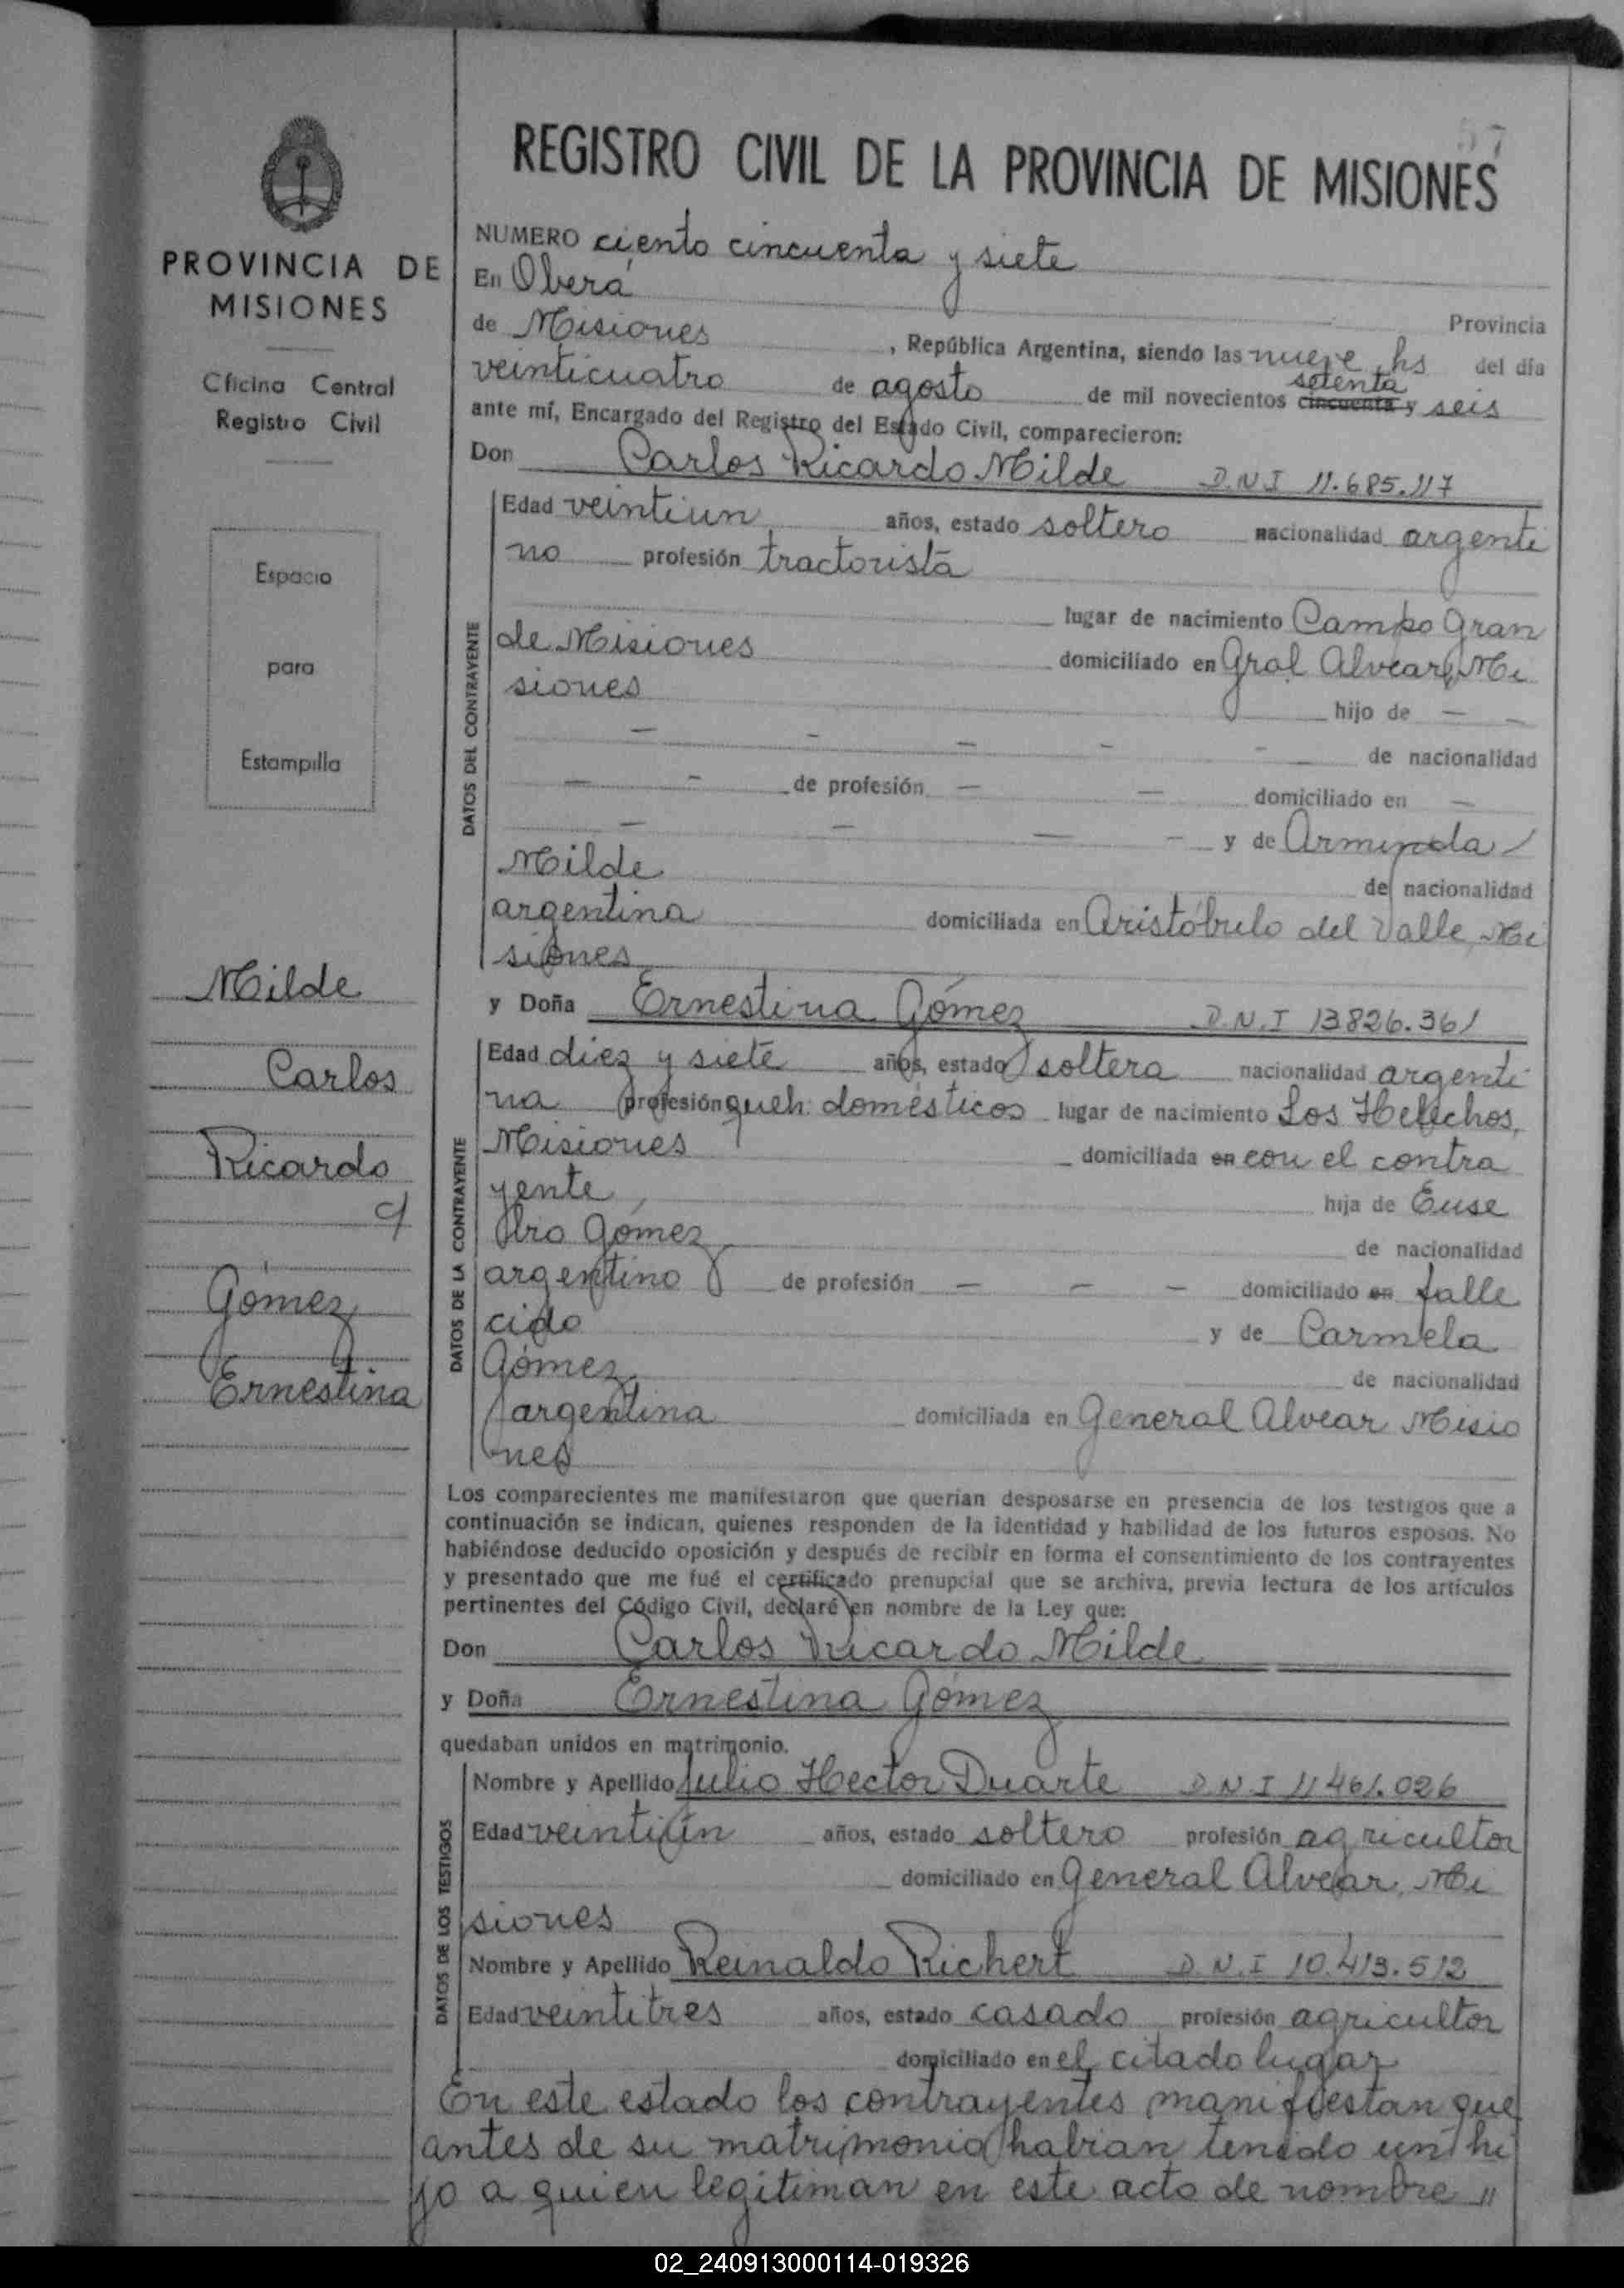 57
REGISTRO CIVIL DE LA PROVINCIA DE MISIONES
PROVINCIA DE
MISIONES
Oficina Central
Registro Civil
Espacio
para
Estampilla
Milde
Carlos
Ricardo
c/
Gómez
Ernestina
NUMERO ciento cincuenta y siete
En Oberá
Provincia
de Misiones, República Argentina, siendo las nueve hs del día
veinticuatro de agosto de mil novecientos cincuenta setenta y seis
ante mí, Encargado del Registro del Estado Civil, comparecieron:
Don Carlos Ricardo Milde D.N.I 11.685.117
DATOS DEL CONTRAYENTE
Edad veintiun años, estado soltero nacionalidad argenti
no profesión tractorista
lugar de nacimiento Campo Gran
de Misiones domiciliado en Gral Alvear, Mi
siones hijo de — —
— — — — — de nacionalidad
— — de profesión — — domiciliado en —
— — — — y de Arminda
Milde de nacionalidad
argentina domiciliada en Aristóbulo del Valle, Mi
siones
y Doña Ernestina Gómez D.N.I 13826.361
DATOS DE LA CONTRAYENTE
Edad diez y siete años, estado soltera nacionalidad argenti
na profesión queh. domésticos lugar de nacimiento Los Helechos,
Misiones domiciliada en con el contra
yente, hija de Euse
bro Gómez de nacionalidad
argentino de profesión — — — domiciliado en falle
cido y de Carmela
Gómez de nacionalidad
argentina domiciliada en General Alvear Misio
nes
Los comparecientes me manifestaron que querían desposarse en presencia de los testigos que a
continuación se indican, quienes responden de la identidad y habilidad de los futuros esposos. No
habiéndose deducido oposición y después de recibir en forma el consentimiento de los contrayentes
y presentado que me fué el certificado prenupcial que se archiva, previa lectura de los artículos
pertinentes del Código Civil, declaré en nombre de la Ley que:
Don Carlos Ricardo Milde
y Doña Ernestina Gómez
quedaban unidos en matrimonio.
DATOS DE LOS TESTIGOS
Nombre y Apellido Julio Hector Duarte D.N.I 11461.026
Edad veintiún años, estado soltero profesión agricultor
domiciliado en General Alvear, Mi
siones
Nombre y Apellido Reinaldo Richert D.N.I 10.413.512
Edad veintitres años, estado casado profesión agricultor
domiciliado en el citado lugar
En este estado los contrayentes manifiestan que
antes de su matrimonio habian tenido un hi
jo a quien legitiman en este acto de nombre "
02_240913000114-019326